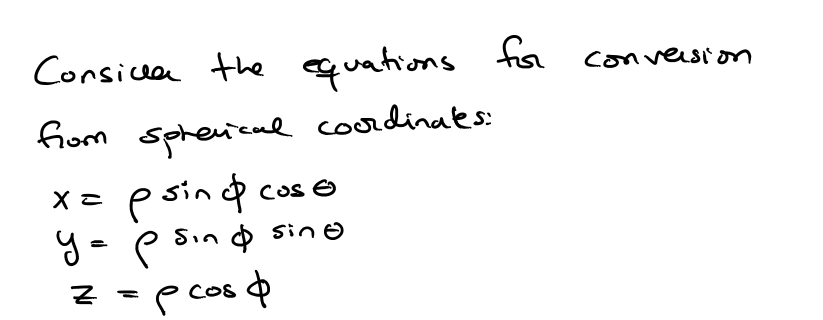 Consider the equations for conversion
from spherical coordinates:
x = ρ sin ϕ cos θ
y = ρ sin ϕ sin θ
z = ρ cos ϕ